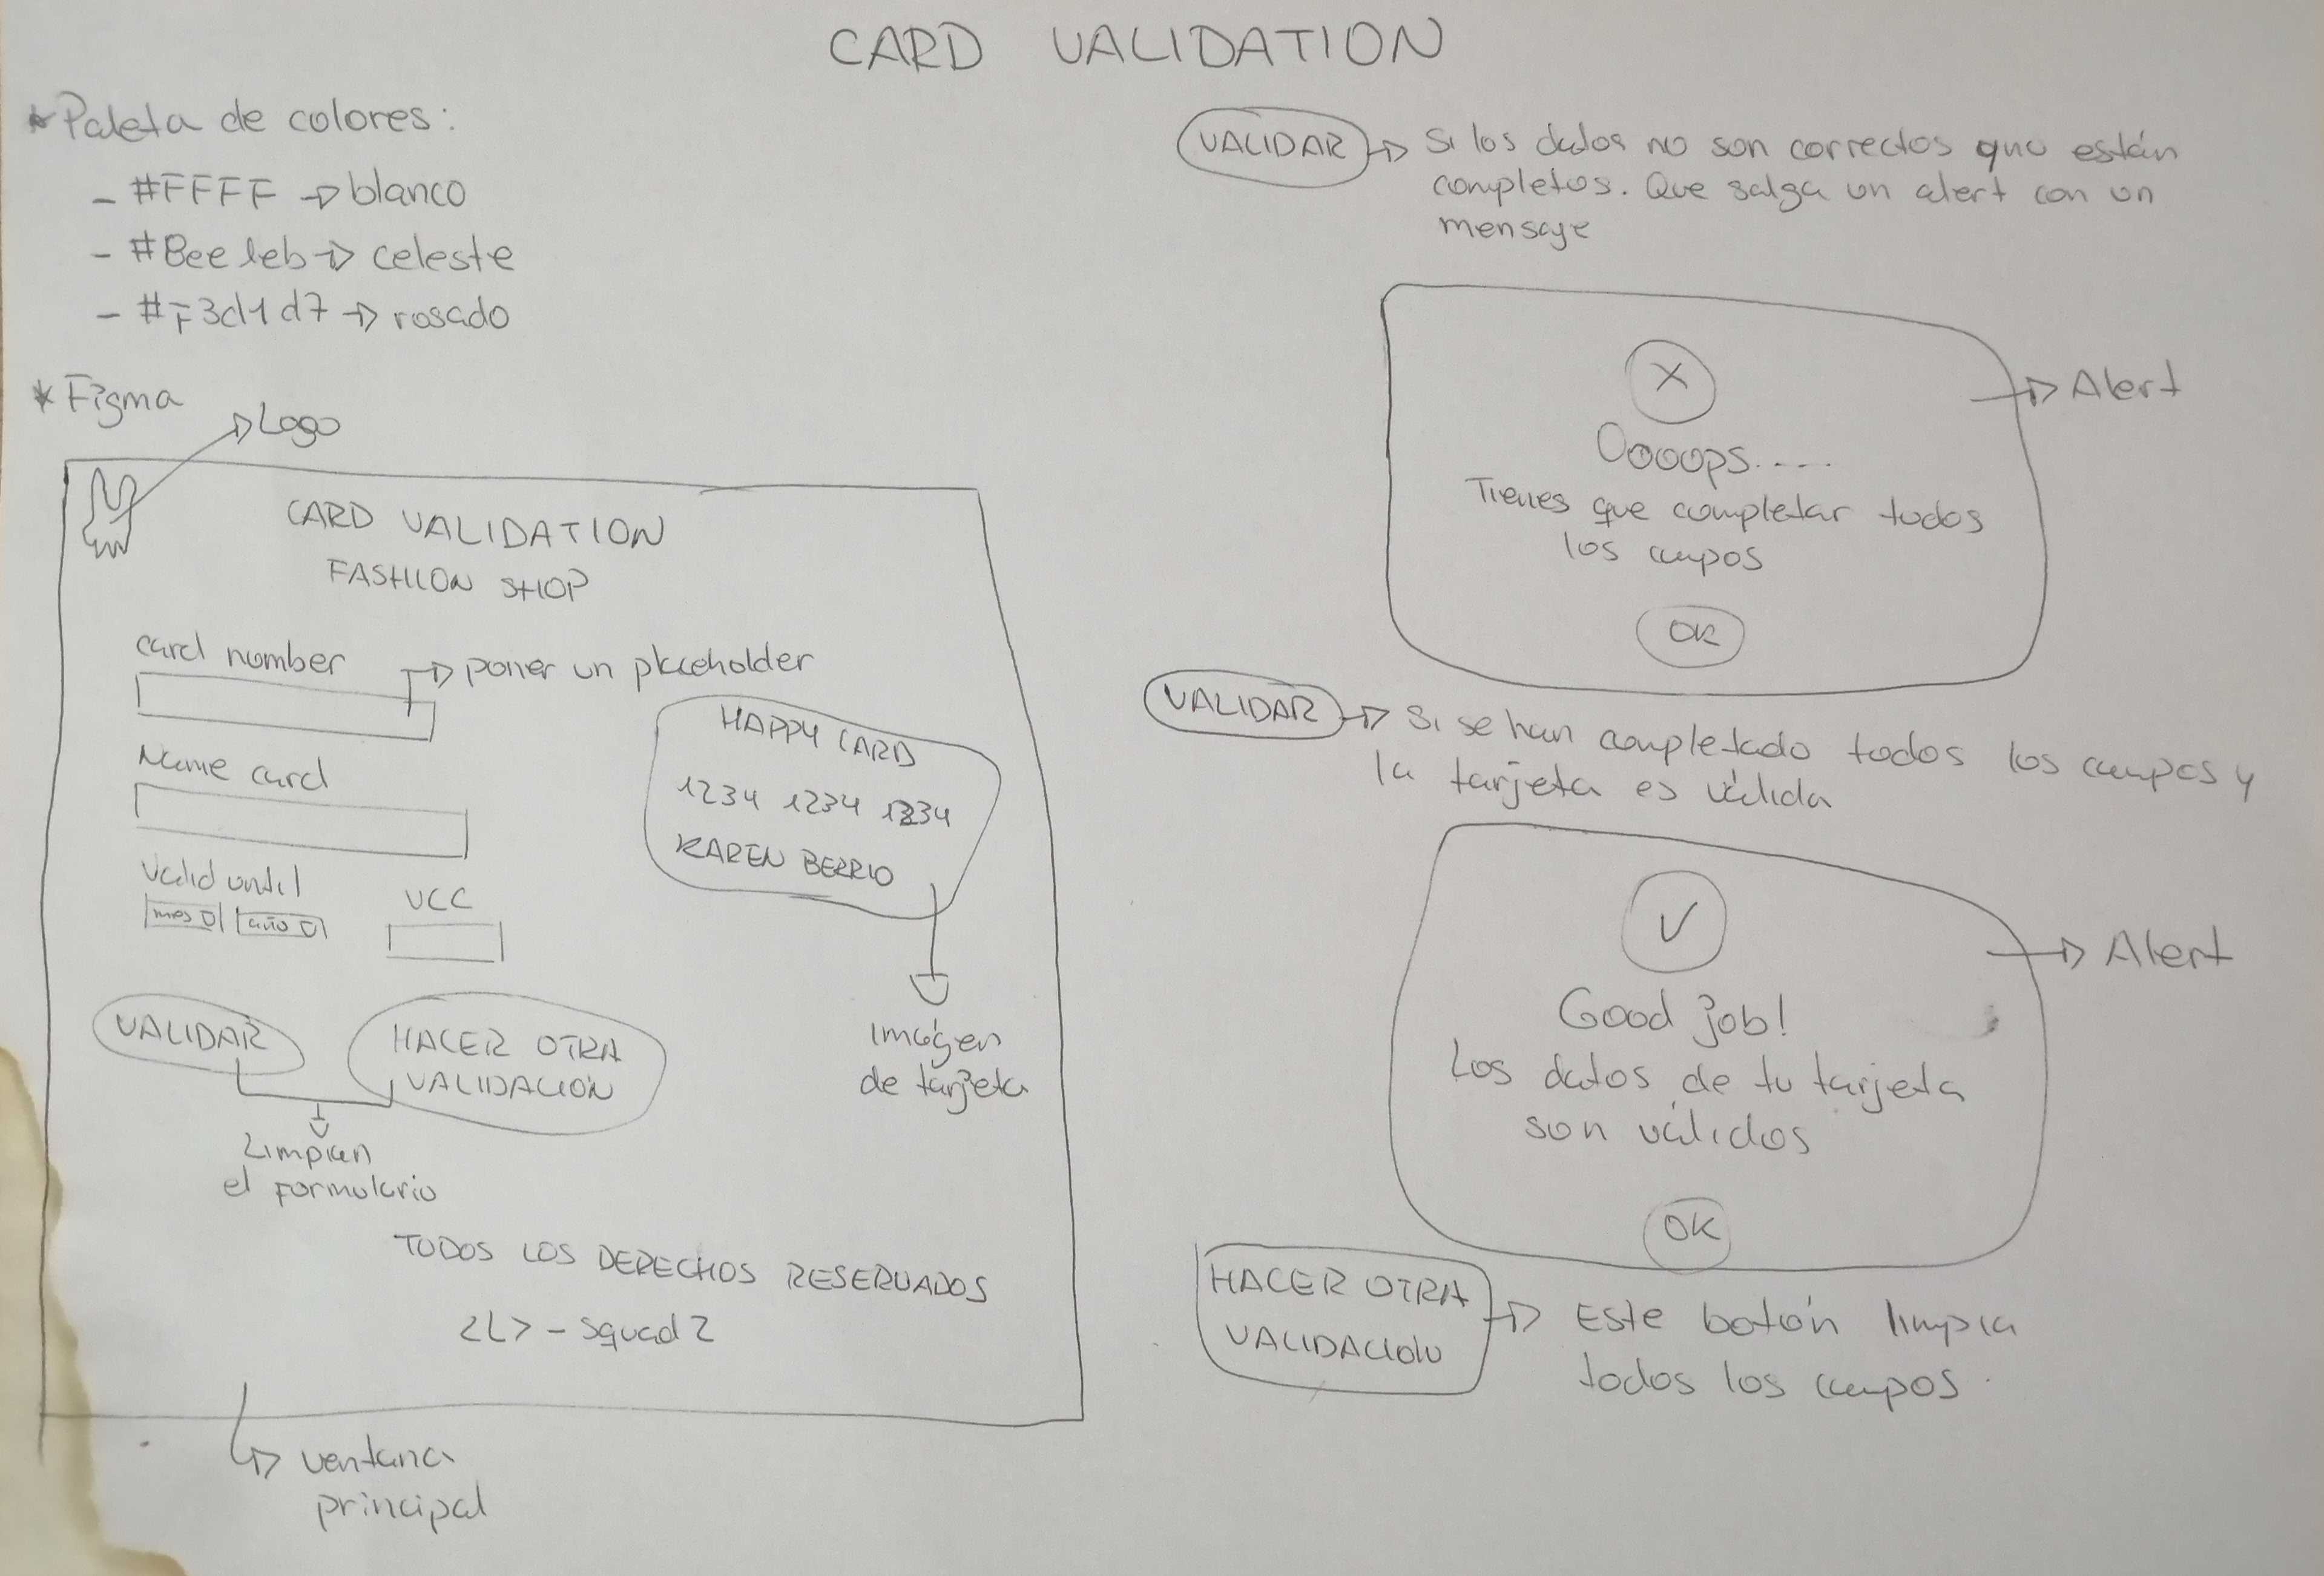 CARD VALIDATION
* Paleta de colores:
- #FFFF → blanco
- → celeste
- #F3d1d7 → rosado
* Figma
Logo
CARD VALIDATION
FASHION SHOP
card number
→ poner un placeholder
Name card
Valid until
mes
año
VCC
HAPPY CARD
1234 1234 1234
KAREN BERRIO
imágen
de tarjeta
VALIDAR
HACER OTRA
VALIDACIÓN
Limpian
el formulario
TODOS LOS DERECHOS RESERVADOS
<L> - Squad 2
→ ventana
principal
VALIDAR → Si los datos no son correctos que están
completos. Que salga un alert con un
mensaje
X
→ Alert
Ooooops.....
Tienes que completar todos
los campos
OK
VALIDAR → Si se han completado todos los campos y
la tarjeta es válida
→ Alert
Good job!
Los datos de tu tarjeta
son válidos
OK
HACER OTRA
VALIDACIÓN
→ Este botón limpia
todos los campos